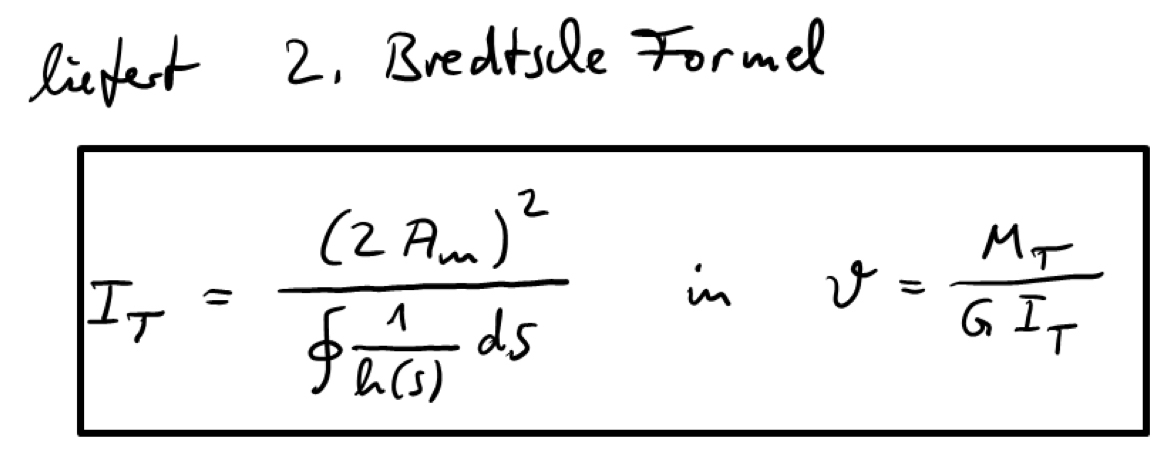 liefert 2. Bredtsche Formel
I_T = (2 A_m)^2 / ∮ 1/h(s) ds in ϑ = M_T / G I_T